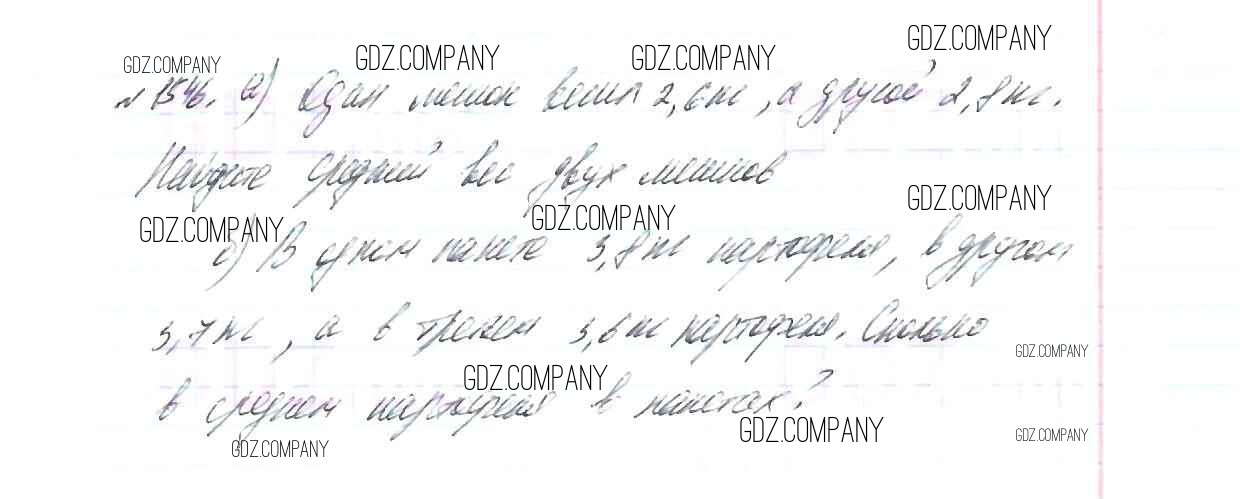 GDZ.COMPANY GDZ.COMPANY GDZ.COMPANY GDZ.COMPANY
№ 1546. а) Один мешок весит 2,6 кг, а другой 2,8 кг.
Найдите средний вес двух мешков
GDZ.COMPANY GDZ.COMPANY GDZ.COMPANY
б) В одном пакете 3,8 кг картофеля, в другом
3,7 кг, а в третьем 3,6 кг картофеля. Сколько
GDZ.COMPANY GDZ.COMPANY
в среднем картофеля в пакетах?
GDZ.COMPANY GDZ.COMPANY GDZ.COMPANY